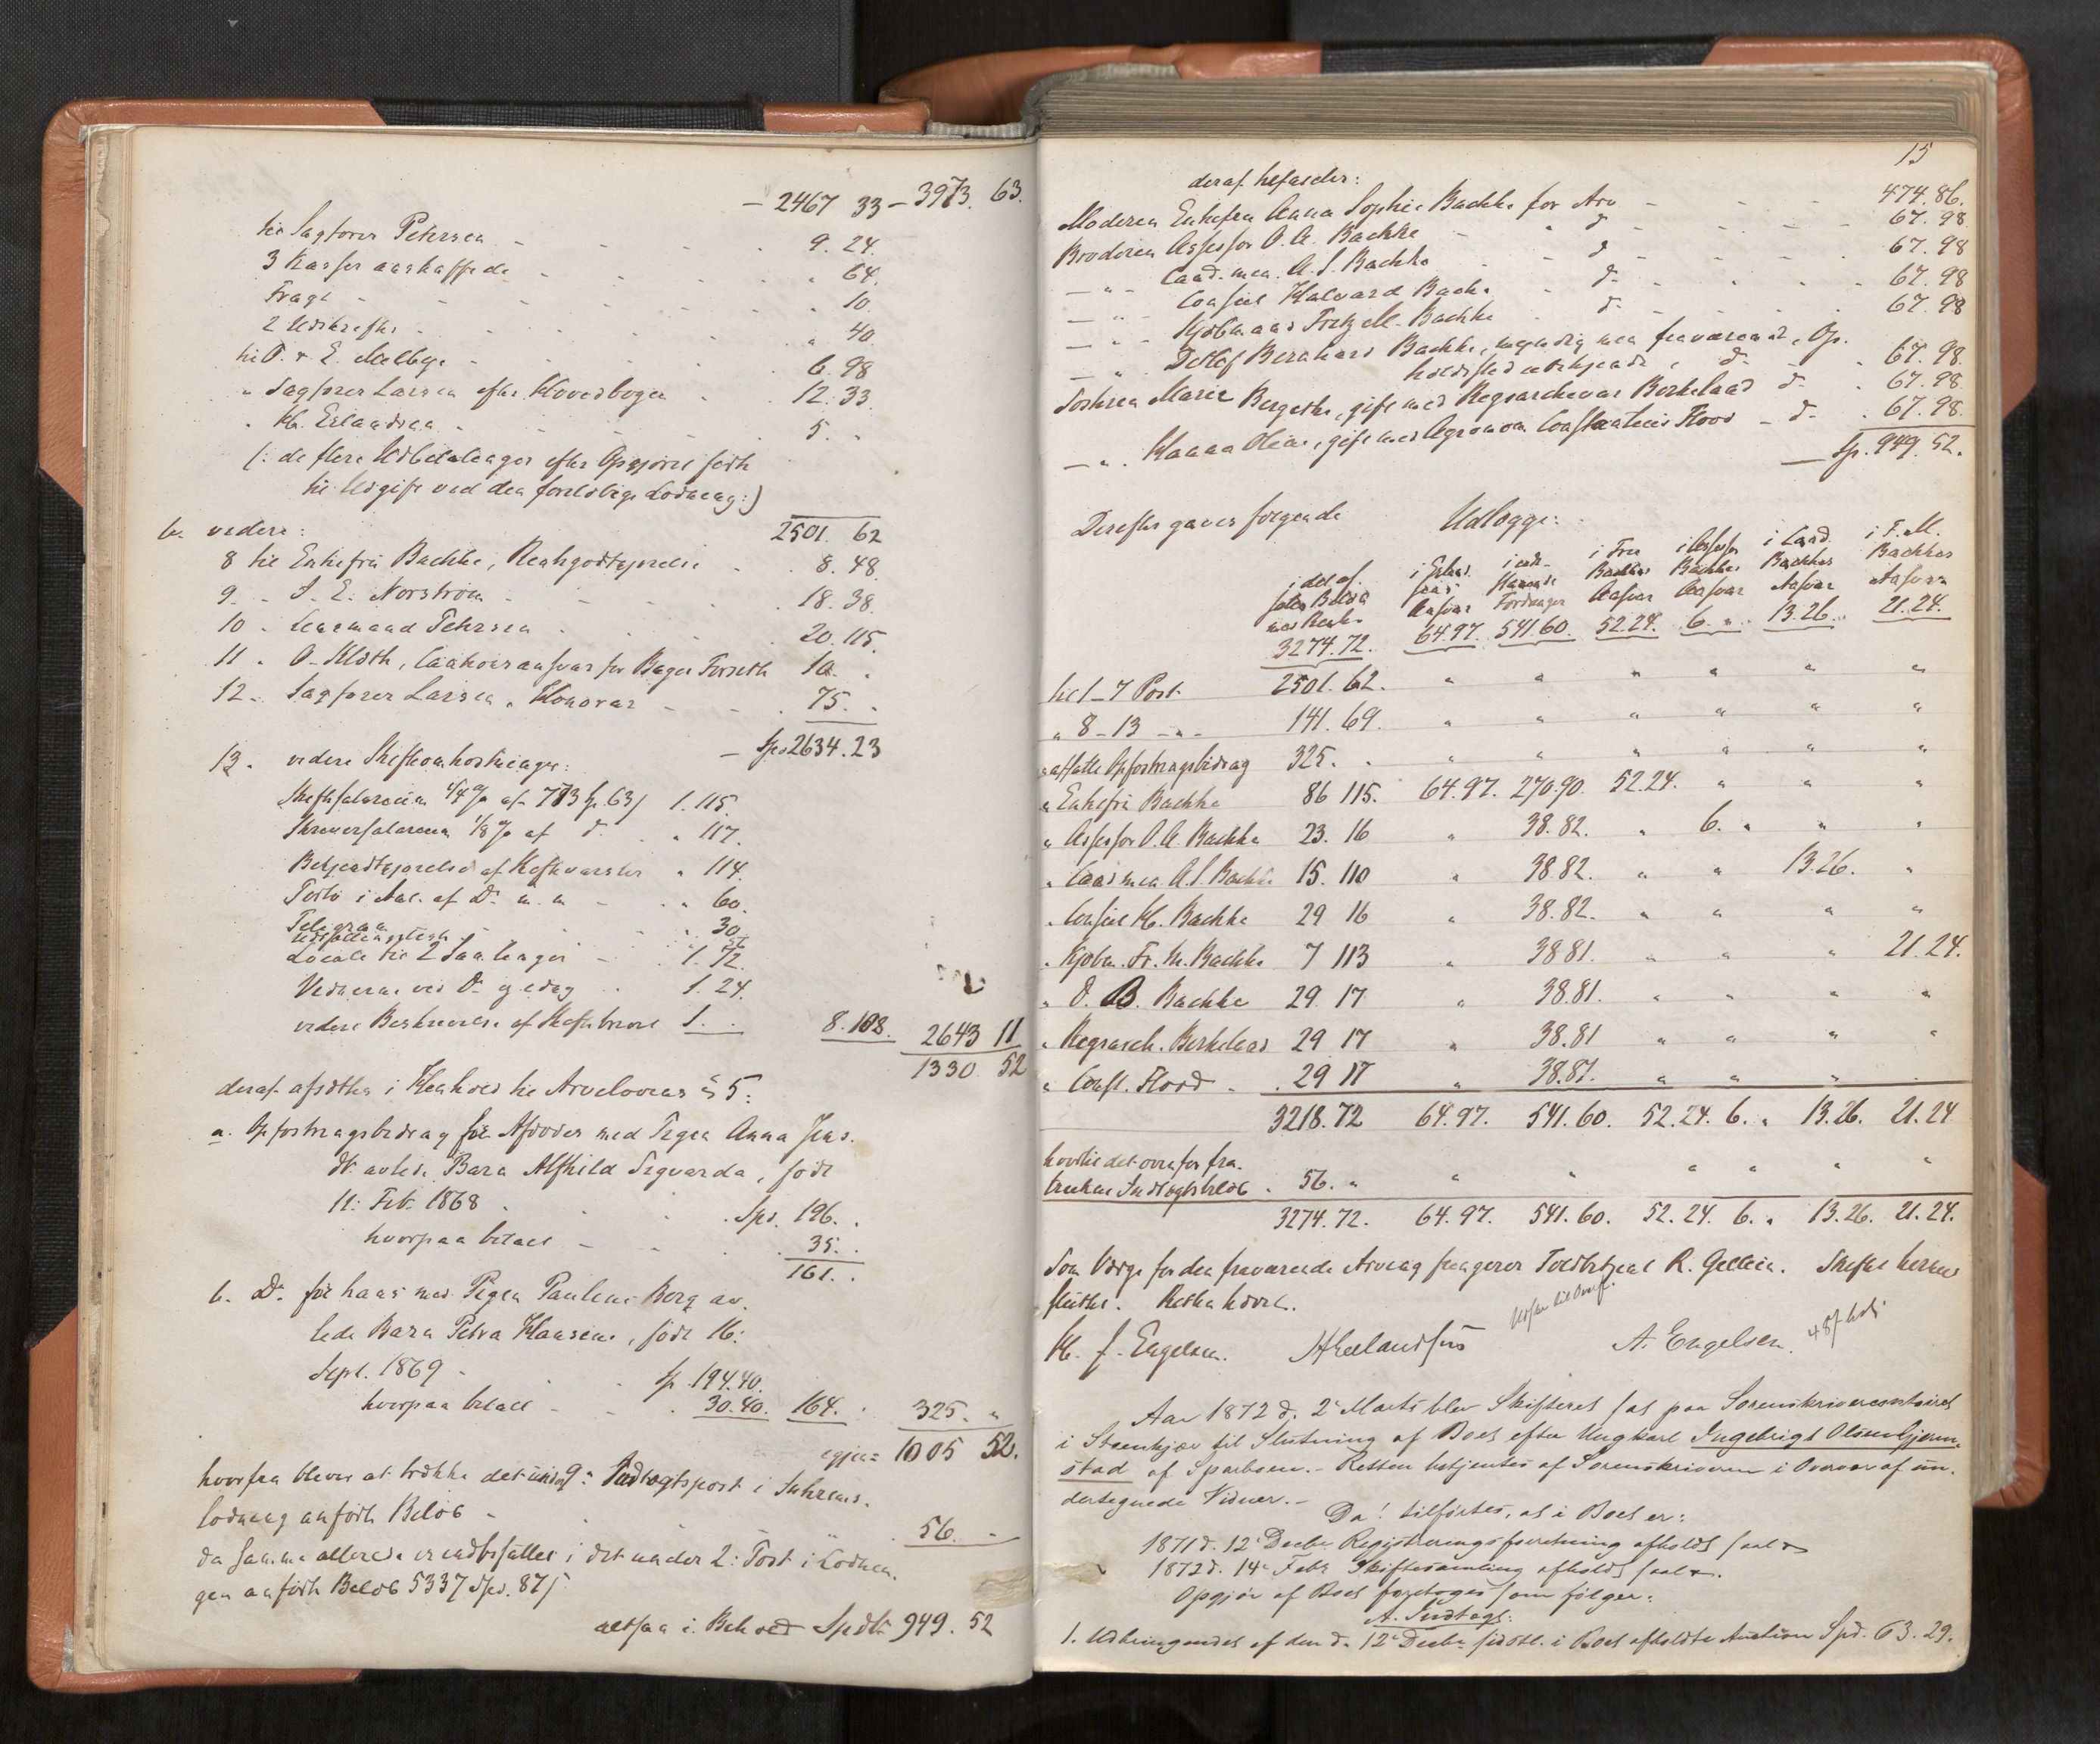 — 2467 33 — 3973. 63.
til Sagfører Petersen - 9. 24.
3 Kasser anskaffede - " 64.
Fragt - " 10.
2 Udskrifter - " 40.
til P. & E. Melbye - 6. 98
" Sagfører Larsen efter Hovedbogen - 12. 33
" H. Erlandsen - 5. "
(: de flere Udbetalinger efter Opgjører førte
til Udgift ved den foreløbige Lodning :)
b. videre: 2501. 62
8 til Enkefru Bachke, Regodtgjørelse - 8. 48.
9. - J. E. Norstrøm - 18. 38.
10 - Lensmand Petersen - 20. 115.
11 " O. Kloth, Cautionsansvar for Bager Forseth 10. "
12 - Sagfører Larsen, Honorar - 75. "
— Spd 2634. 23
13. videre Skifteomkostninger:
Skiftesalarium 1/4 % af 773 Sp. 63 / 1. 115.
Skriversalarium 1/8 % af d. " 117.
Bekjendtgjørelse af Skiftevarsler " 114.
Porto i Anl. af Do m. m - " 60.
Telegram - " 30
Locale til 2 Samlinger - 1. 72.
Vidnerne ved Do og idag - 1. 24.
videre Beskrivelse af Skiftebrevet 1. " 8. 108. 2643 11
1330 52
deraf afsættes i Henhold til Arvelovens § 5:
a. Opfostringsbidrag for Afdødes med Pigen Anna Jens.
dt. avlede Barn Alfhild Sigvarda, født
11: Feb. 1868 - Spd. 196. "
hvorpaa betalt - 35. "
161. "
b. Do for hans med Pigen Pauline Berg av.
lede Barn Petra Hansine, født 16:
Sept. 1869 - Sp. 194. 40.
hvorpaa betalt - 30. 40. 164. " 325. "
igjen = 1005 52.
hvorfra bliver at trække det under 9: Indtægtspost i
Lodning anførte Beløb -
56. "
da samme allerede er indbefattet i det under 2: Post i Lodnin.
gen anførte Beløb 5337 Spd. 87 /
altsaa i Behold Spdlr 949. 52
15
deraf tilfalder:
Moderen Enkefru Anna Sophie Bachke for Arv - 474. 86.
Broderen Assessor O. A. Bachke - d - 67. 98
— " - Cand. min. A. S. Bachke - d - 67. 98
— " - Consul Halvard Bachke - d - 67. 98
— " - Kjøbmand Fritz M. Bachke - d - 67. 98
— " Detlef Bernhard Bachke, myndig men fraværende, Op.
holdsted ubekjendt, d - 67. 98
Søstren Marie Bergethe, gift med Regnearchivar Berkeland d - 67. 98
— " - Hanna Oline, gift med Agronom Constantius Flood - d - 67. 98.
— Sp. 949. 52.
Derefter gaves følgende Udlægge:
i det af. i Erland. i ude- i Fru i Assessor i Cand. i F. M.
sens staaende Bachkes Bachkes Bachkes Bachkes
Ansvar Fordringer Ansvar Ansvar Ansvar Ansvar
3274. 72. 64. 97. 541. 60. 52. 24. 6. " 13. 26. 21. 24.
til 1 - 7 Post 2501. 62. " " " " " "
" 8 - 13 - " - 141. 69. " " " " " "
" afsatte Opfostringsbidrag 325. " " " " " " "
" Enkefru Bachke 86 115. 64. 97. 270. 90. 52. 24. " " "
" Assessor O. A. Bachke 23. 16 " 38. 82. " 6. " " "
" Cand. min. A. S. Bachke 15. 110 " 38 82. " " 13. 26. "
" Consul H. Bachke 29 16 " 38. 82. " " " "
" Kjøbm. Fr. M. Bachke 7 113 " 38 81. " " " 21. 24.
" D. B. Bachke 29. 17 " 38. 81. " " " "
" Regnarch. Berkeland 29 17 " 38. 81 " " " "
" Const. Flood - 29 17 " 38. 81. " " " "
3218. 72 64. 97. 541. 60. 52. 24. 6. " 13. 26. 21. 24
hvortil det ovenfor fra.
trukne Indtægtsbeløb . 56. " " " " " " "
3274. 72. 64. 97. 541. 60. 52. 24. 6. " 13. 26. 21. 24.
Som Værge for den fraværende Arving fungerer Toldbetjent R. Gellein. Skiftet hermed
sluttet. Retten hævet.
H. J. Engelsen. A. Engelsen.
Aar 1872 d. 2 Marts blev Skifteret sat paa Sorenskrivercontoiret
i Steenkjær til Slutning af Boet efter Ungkarl Ingebrigt Olsen Gjærm.
stad af Sparboen. - Retten betjentes af Sorenskriveren i Overvær af un.
dertegnede Vidner. -
Da! tilførtes, at i Boet er:
1871 d. 12 Decbr Registreringsforretning afholdt saal.
1872 d. 14 Febr Skiftesamling afholdt saal.
Opgjør af Boet foretoges som følger:
A. Indtægt:
1. Udbringendet af den d. 12 Decbr sidstl. i Boet afholdte Auction Spd. 63. 29.